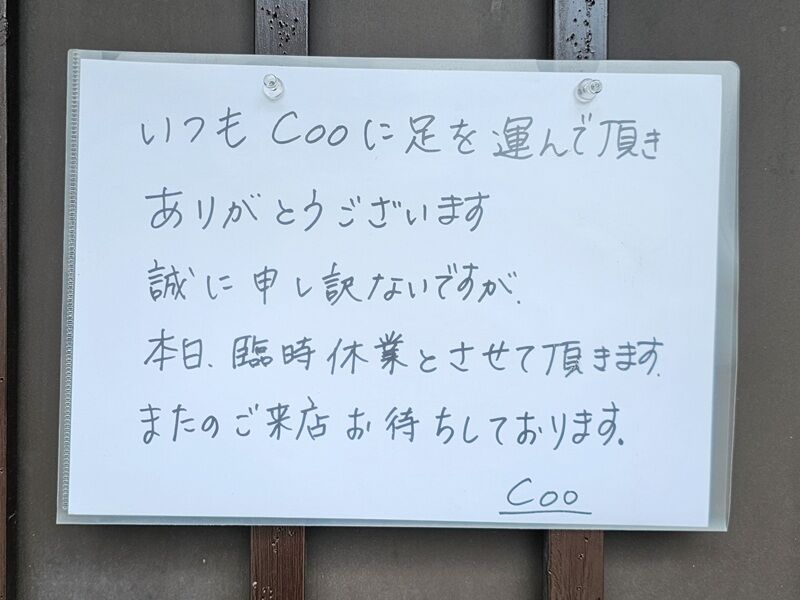 いつも Cooに足を運んで頂き
ありがとうございます
誠に申し訳ないですが、
本日、臨時休業とさせて頂きます。
またのご来店お待ちしております。
Coo